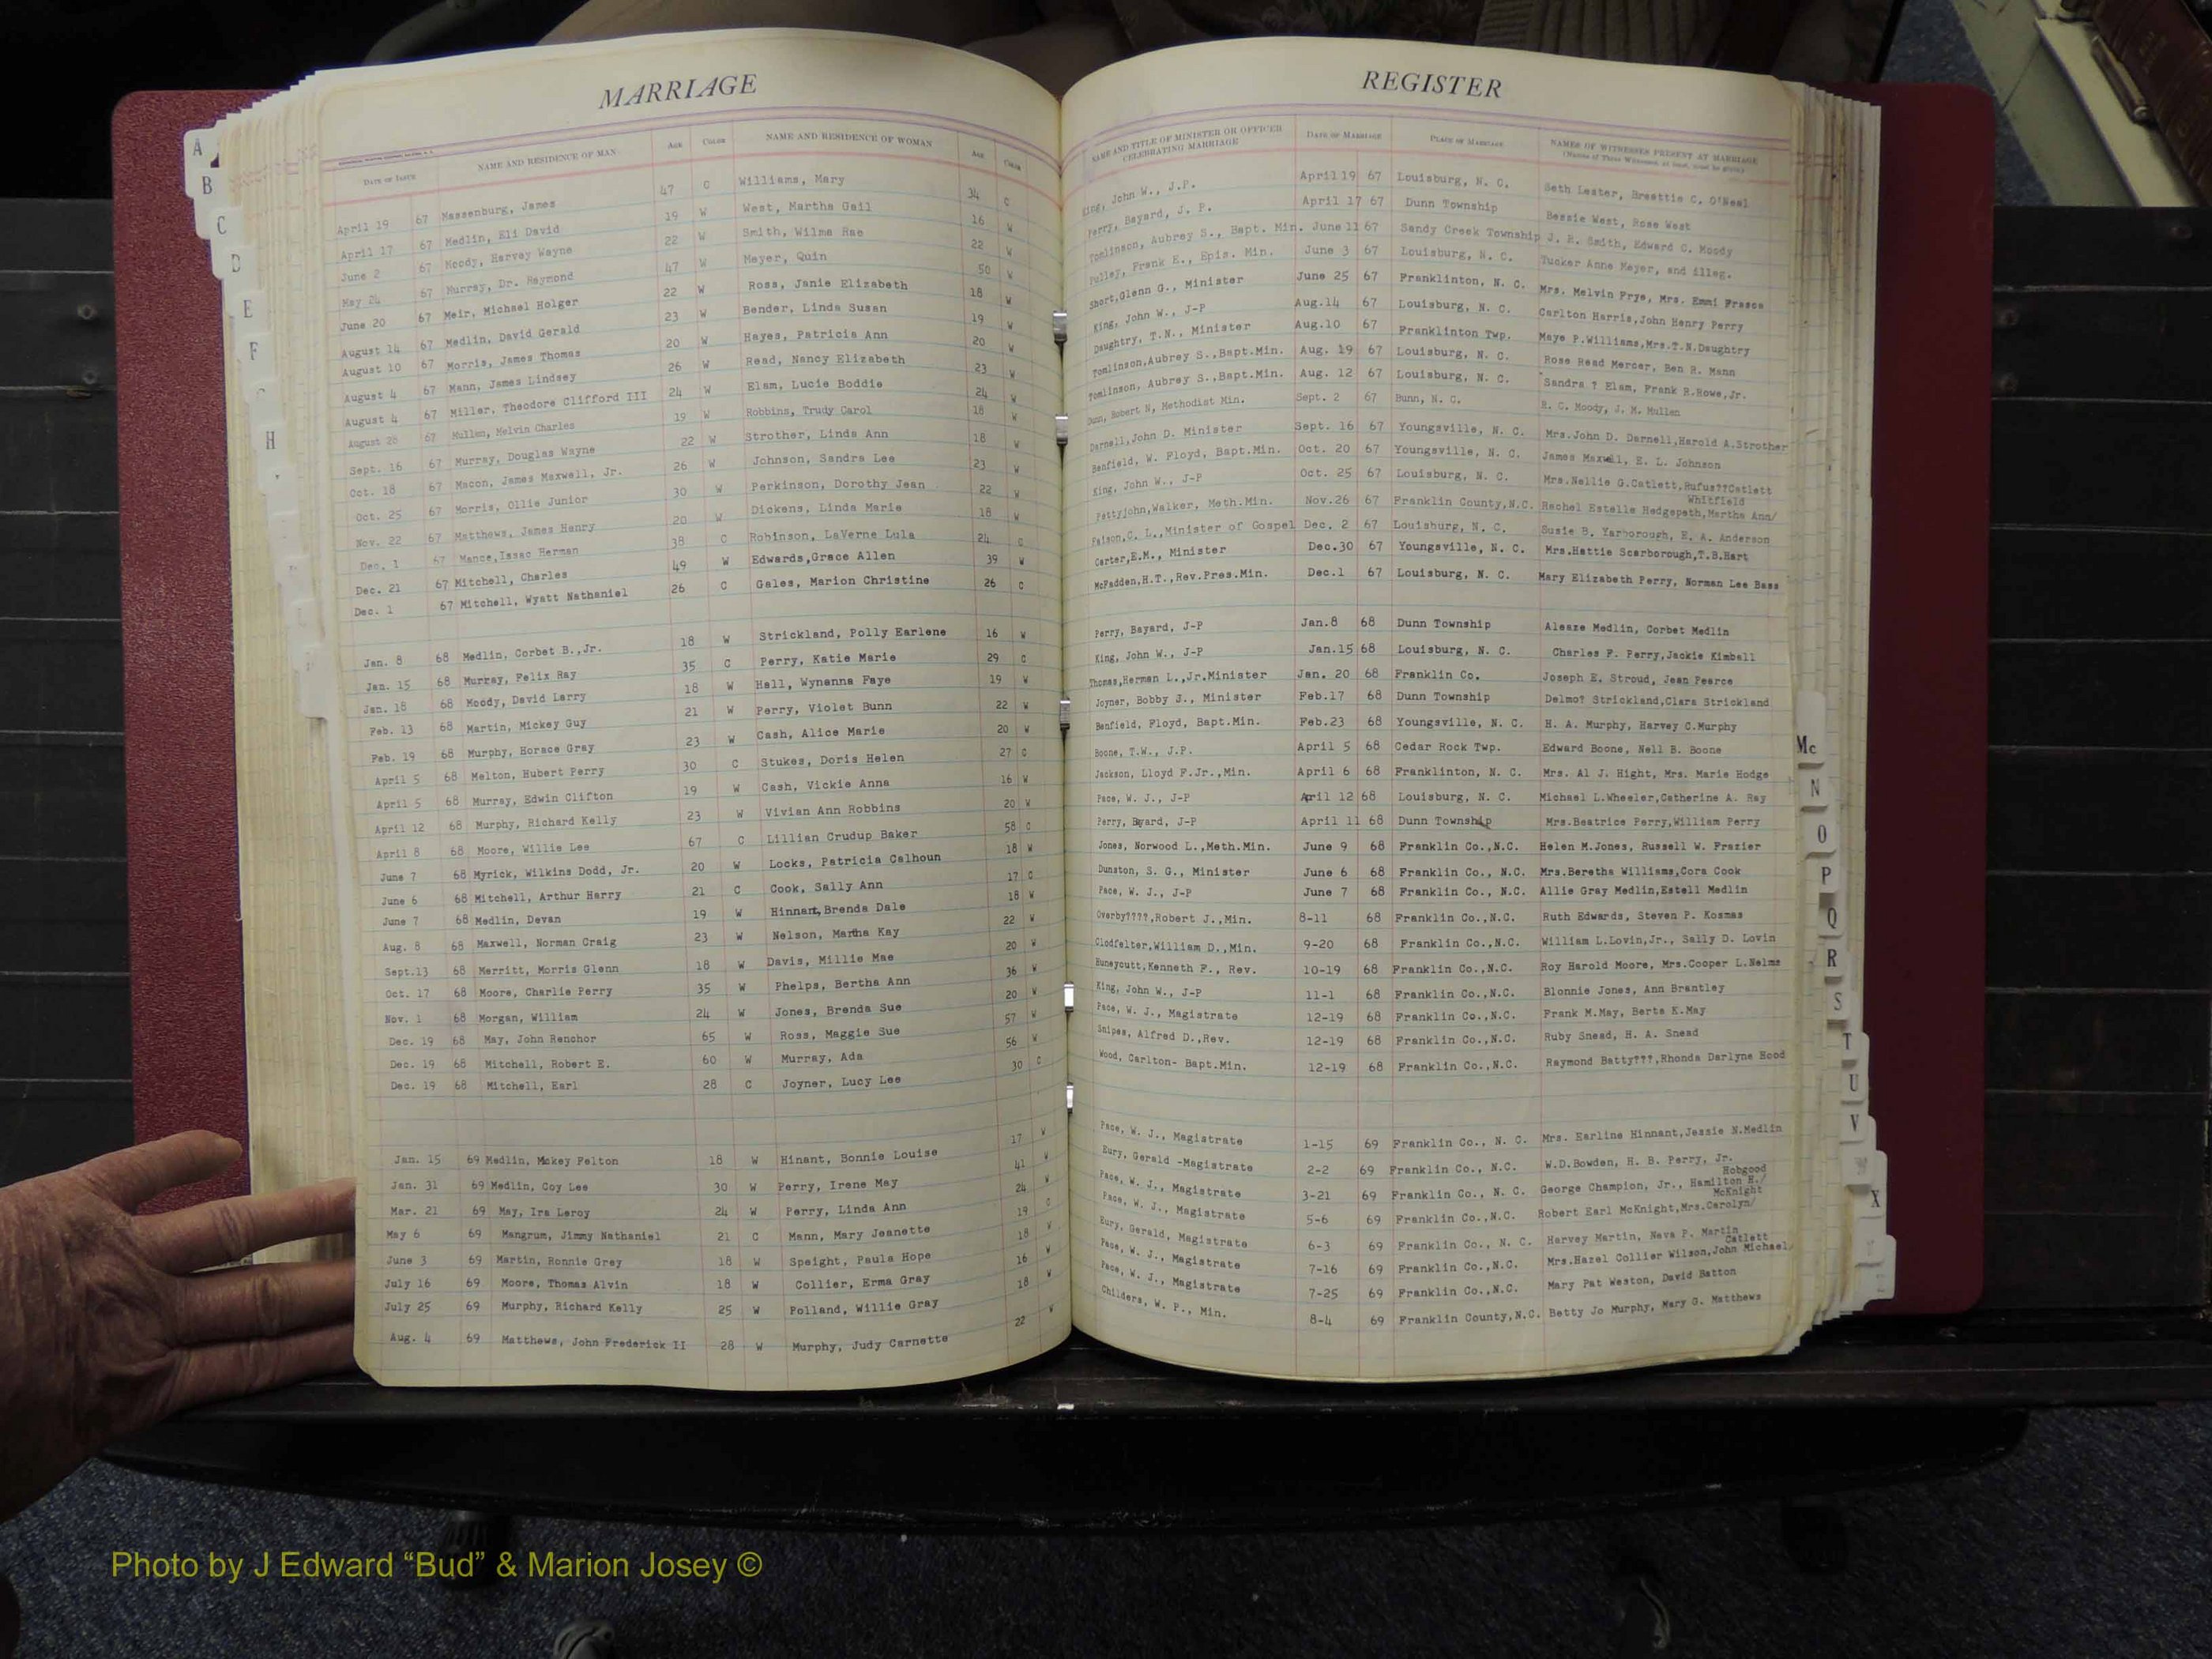 MARRIAGE
DATE OF ISSUE NAME AND RESIDENCE OF MAN AGE COLOR NAME AND RESIDENCE OF WOMAN AGE COLOR
April 19 67 Massenburg, James 47 C Williams, Mary 34 C
April 17 67 Medlin, Eli David 19 W West, Martha Gail 16 W
June 2 67 Moody, Harvey Wayne 22 W Smith, Wilma Rae 22 W
May 24 67 Murray, Dr. Raymond 47 W Meyer, Quin 50 W
June 20 67 Meir, Michael Holger 22 W Ross, Janie Elizabeth 18 W
August 14 67 Medlin, David Gerald 23 W Bender, Linda Susan 19 W
August 10 67 Morris, James Thomas 20 W Hayes, Patricia Ann 20 W
August 4 67 Mann, James Lindsey 26 W Read, Nancy Elizabeth 23 W
August 4 67 Miller, Theodore Clifford III 24 W Elam, Lucie Boddie 24 W
August 28 67 Mullen, Melvin Charles 19 W Robbins, Trudy Carol 18 W
Sept. 16 67 Murray, Douglas Wayne 22 W Strother, Linda Ann 18 W
Oct. 18 67 Macon, James Maxwell, Jr. 26 W Johnson, Sandra Lee 23 W
Oct. 25 67 Morris, Ollie Junior 30 W Perkinson, Dorothy Jean 22 W
Nov. 22 67 Matthews, James Henry 20 W Dickens, Linda Marie 18 W
Dec. 1 67 Mance, Issac Herman 38 C Robinson, LaVerne Lula 24 C
Dec. 21 67 Mitchell, Charles 49 W Edwards,Grace Allen 39 W
Dec. 1 67 Mitchell, Wyatt Nathaniel 26 C Gales, Marion Christine 26 C
Jan. 8 68 Medlin, Corbet B.,Jr. 18 W Strickland, Polly Earlene 16 W
Jan. 15 68 Murray, Felix Ray 35 C Perry, Katie Marie 29 C
Jan. 18 68 Moody, David Larry 18 W Hall, Wynanna Faye 19 W
Feb. 13 68 Martin, Mickey Guy 21 W Perry, Violet Bunn 22 W
Feb. 19 68 Murphy, Horace Gray 23 W Cash, Alice Marie 20 W
April 5 68 Melton, Hubert Perry 30 C Stukes, Doris Helen 27 C
April 5 68 Murray, Edwin Clifton 19 W Cash, Vickie Anna 16 W
April 12 68 Murphy, Richard Kelly 23 W Vivian Ann Robbins 20 W
April 8 68 Moore, Willie Lee 67 C Lillian Crudup Baker 58 C
June 7 68 Myrick, Wilkins Dodd, Jr. 20 W Locks, Patricia Calhoun 18 W
June 6 68 Mitchell, Arthur Harry 21 C Cook, Sally Ann 17 C
June 7 68 Medlin, Devan 19 W Hinnant,Brenda Dale 18 W
Aug. 8 68 Maxwell, Norman Craig 23 W Nelson, Martha Kay 22 W
Sept.13 68 Merritt, Morris Glenn 18 W Davis, Millie Mae 20 W
Oct. 17 68 Moore, Charlie Perry 35 W Phelps, Bertha Ann 36 W
Nov. 1 68 Morgan, William 24 W Jones, Brenda Sue 20 W
Dec. 19 68 May, John Renchor 65 W Ross, Maggie Sue 57 W
Dec. 19 68 Mitchell, Robert E. 60 W Murray, Ada 56 W
Dec. 19 68 Mitchell, Earl 28 C Joyner, Lucy Lee 30 C
Jan. 15 69 Medlin, Mckey Felton 18 W Hinant, Bonnie Louise 17 W
Jan. 31 69 Medlin, Coy Lee 30 W Perry, Irene May 41 W
Mar. 21 69 May, Ira Leroy 24 W Perry, Linda Ann 24 W
May 6 69 Mangrum, Jimmy Nathaniel 21 C Mann, Mary Jeanette 19 C
June 3 69 Martin, Ronnie Grey 18 W Speight, Paula Hope 18 W
July 16 69 Moore, Thomas Alvin 18 W Collier, Erma Gray 16 W
July 25 69 Murphy, Richard Kelly 25 W Polland, Willie Gray 18 W
Aug. 4 69 Matthews, John Frederick II 28 W Murphy, Judy Carnette 22 W
REGISTER
NAME AND TITLE OF MINISTER OR OFFICER CELEBRATING MARRIAGE DATE OF MARRIAGE PLACE OF MARRIAGE NAMES OF WITNESSES PRESENT AT MARRIAGE
(Names of Three Witnesses, at least, must be given)
King, John W., J.P. April 19 67 Louisburg, N. C. Seth Lester, Breettie C. O'Neal
Perry, Bayard, J. P. April 17 67 Dunn Township Bessie West, Rose West
Tomlinson, Aubrey S., Bapt. Min. June 11 67 Sandy Creek Township J. R. Smith, Edward C. Moody
Pulley, Frank E., Epis. Min. June 3 67 Louisburg, N. C. Tucker Anne Mayer, and illeg.
Short,Glenn G., Minister June 25 67 Franklinton, N. C. Mrs. Melvin Frye, Mrs. Emmi Frasca
King, John W., J-P Aug.14 67 Louisburg, N. C. Carlton Harris,John Henry Perry
Daughtry, T.N., Minister Aug.10 67 Franklinton Twp. Maye P.Williams,Mrs.T.N.Daughtry
Tomlinson,Aubrey S.,Bapt.Min. Aug. 19 67 Louisburg, N. C. Rose Read Mercer, Ben R. Mann
Tomlinson, Aubrey S.,Bapt.Min. Aug. 12 67 Louisburg, N. C. Sandra ? Elam, Frank R.Rowe,Jr.
Dunn, Robert N, Methodist Min. Sept. 2 67 Bunn, N. C. R. C. Moody, J. M. Mullen
Darnell,John D. Minister Sept. 16 67 Youngsville, N. C. Mrs.John D. Darnell,Harold A.Strother
Benfield, W. Floyd, Bapt.Min. Oct. 20 67 Youngsville, N. C. James Maxwell, E. L. Johnson
King, John W., J-P Oct. 25 67 Louisburg, N. C. Mrs.Nellie G.Catlett,Rufus??Catlett
Whitfield
Pettyjohn,Walker, Meth.Min. Nov.26 67 Franklin County,N.C. Rachel Estelle Hedgepeth,Martha Ann/
Faison,C. L.,Minister of Gospel Dec. 2 67 Louisburg, N. C. Susie B. Yarborough, E. A. Anderson
Carter,E.M., Minister Dec.30 67 Youngsville, N. C. Mrs.Hattie Scarborough,T.B.Hart
McFadden,H.T.,Rev.Pres.Min. Dec.1 67 Louisburg, N. C. Mary Elizabeth Perry, Norman Lee Bass
Perry, Bayard, J-P Jan.8 68 Dunn Township Aleaze Medlin, Corbet Medlin
King, John W., J-P Jan.15 68 Louisburg, N. C. Charles F. Perry,Jackie Kimball
Thomas,Herman L.,Jr.Minister Jan. 20 68 Franklin Co. Joseph E. Stroud, Jean Pearce
Joyner, Bobby J., Minister Feb.17 68 Dunn Township Delmo? Strickland,Clara Strickland
Benfield, Floyd, Bapt.Min. Feb.23 68 Youngsville, N. C. H. A. Murphy, Harvey C.Murphy
Boone, T.W., J.P. April 5 68 Cedar Rock Twp. Edward Boone, Nell B. Boone
Jackson, Lloyd F.Jr.,Min. April 6 68 Franklinton, N. C. Mrs. Al J. Hight, Mrs. Marie Hodge
Pace, W. J., J-P April 12 68 Louisburg, N. C. Michael L.Wheeler,Catherine A. Ray
Perry, Bayard, J-P April 11 68 Dunn Township Mrs.Beatrice Perry,William Perry
Jones, Norwood L.,Meth.Min. June 9 68 Franklin Co.,N.C. Helen M.Jones, Russell W. Frazier
Dunston, S. G., Minister June 6 68 Franklin Co., N.C. Mrs.Beretha Williams,Cora Cook
Pace, W. J., J-P June 7 68 Franklin Co., N.C. Allie Gray Medlin,Estell Medlin
Overby????,Robert J.,Min. 8-11 68 Franklin Co.,N.C. Ruth Edwards, Steven P. Kosmas
Clodfelter,William D.,Min. 9-20 68 Franklin Co.,N.C. William L.Lovin,Jr., Sally D. Lovin
Huneycutt,Kenneth F., Rev. 10-19 68 Franklin Co.,N.C. Roy Harold Moore, Mrs.Cooper L.Nelms
King, John W., J-P 11-1 68 Franklin Co.,N.C. Blonnie Jones, Ann Brantley
Pace, W. J., Magistrate 12-19 68 Franklin Co.,N.C. Frank M.May, Berta K.May
Snipes, Alfred D.,Rev. 12-19 68 Franklin Co.,N.C. Ruby Snead, H. A. Snead
Wood, Carlton- Bapt.Min. 12-19 68 Franklin Co.,N.C. Raymond Batty???,Rhonda Darlyne Hood
Pace, W. J., Magistrate 1-15 69 Franklin Co., N. C. Mrs. Earline Hinnant,Jessie N.Medlin
Eury, Gerald -Magistrate 2-2 69 Franklin Co., N.C. W.D.Bowden, H. B. Perry, Jr.
Hobgood
Pace, W. J., Magistrate 3-21 69 Franklin Co., N. C. George Champion, Jr., Hamilton H./
McKnight
Pace, W. J., Magistrate 5-6 69 Franklin Co.,N.C. Robert Earl McKnight,Mrs.Carolyn/
Eury, Gerald, Magistrate 6-3 69 Franklin Co., N. C. Harvey Martin, Neva P. Martin
Catlett
Pace, W. J., Magistrate 7-16 69 Franklin Co.,N.C. Mrs.Hazel Collier Wilson,John Michael/
Pace, W. J., Magistrate 7-25 69 Franklin Co.,N.C. Mary Pat Weston, David Batton
Childers, W. P., Min. 8-4 69 Franklin County,N.C. Betty Jo Murphy, Mary G. Matthews
A
B
C
D
E
F
H
Mc
N
O
P
Q
R
S
T
U
V
W
X
Y
Z
Photo by J Edward “Bud” & Marion Josey ©